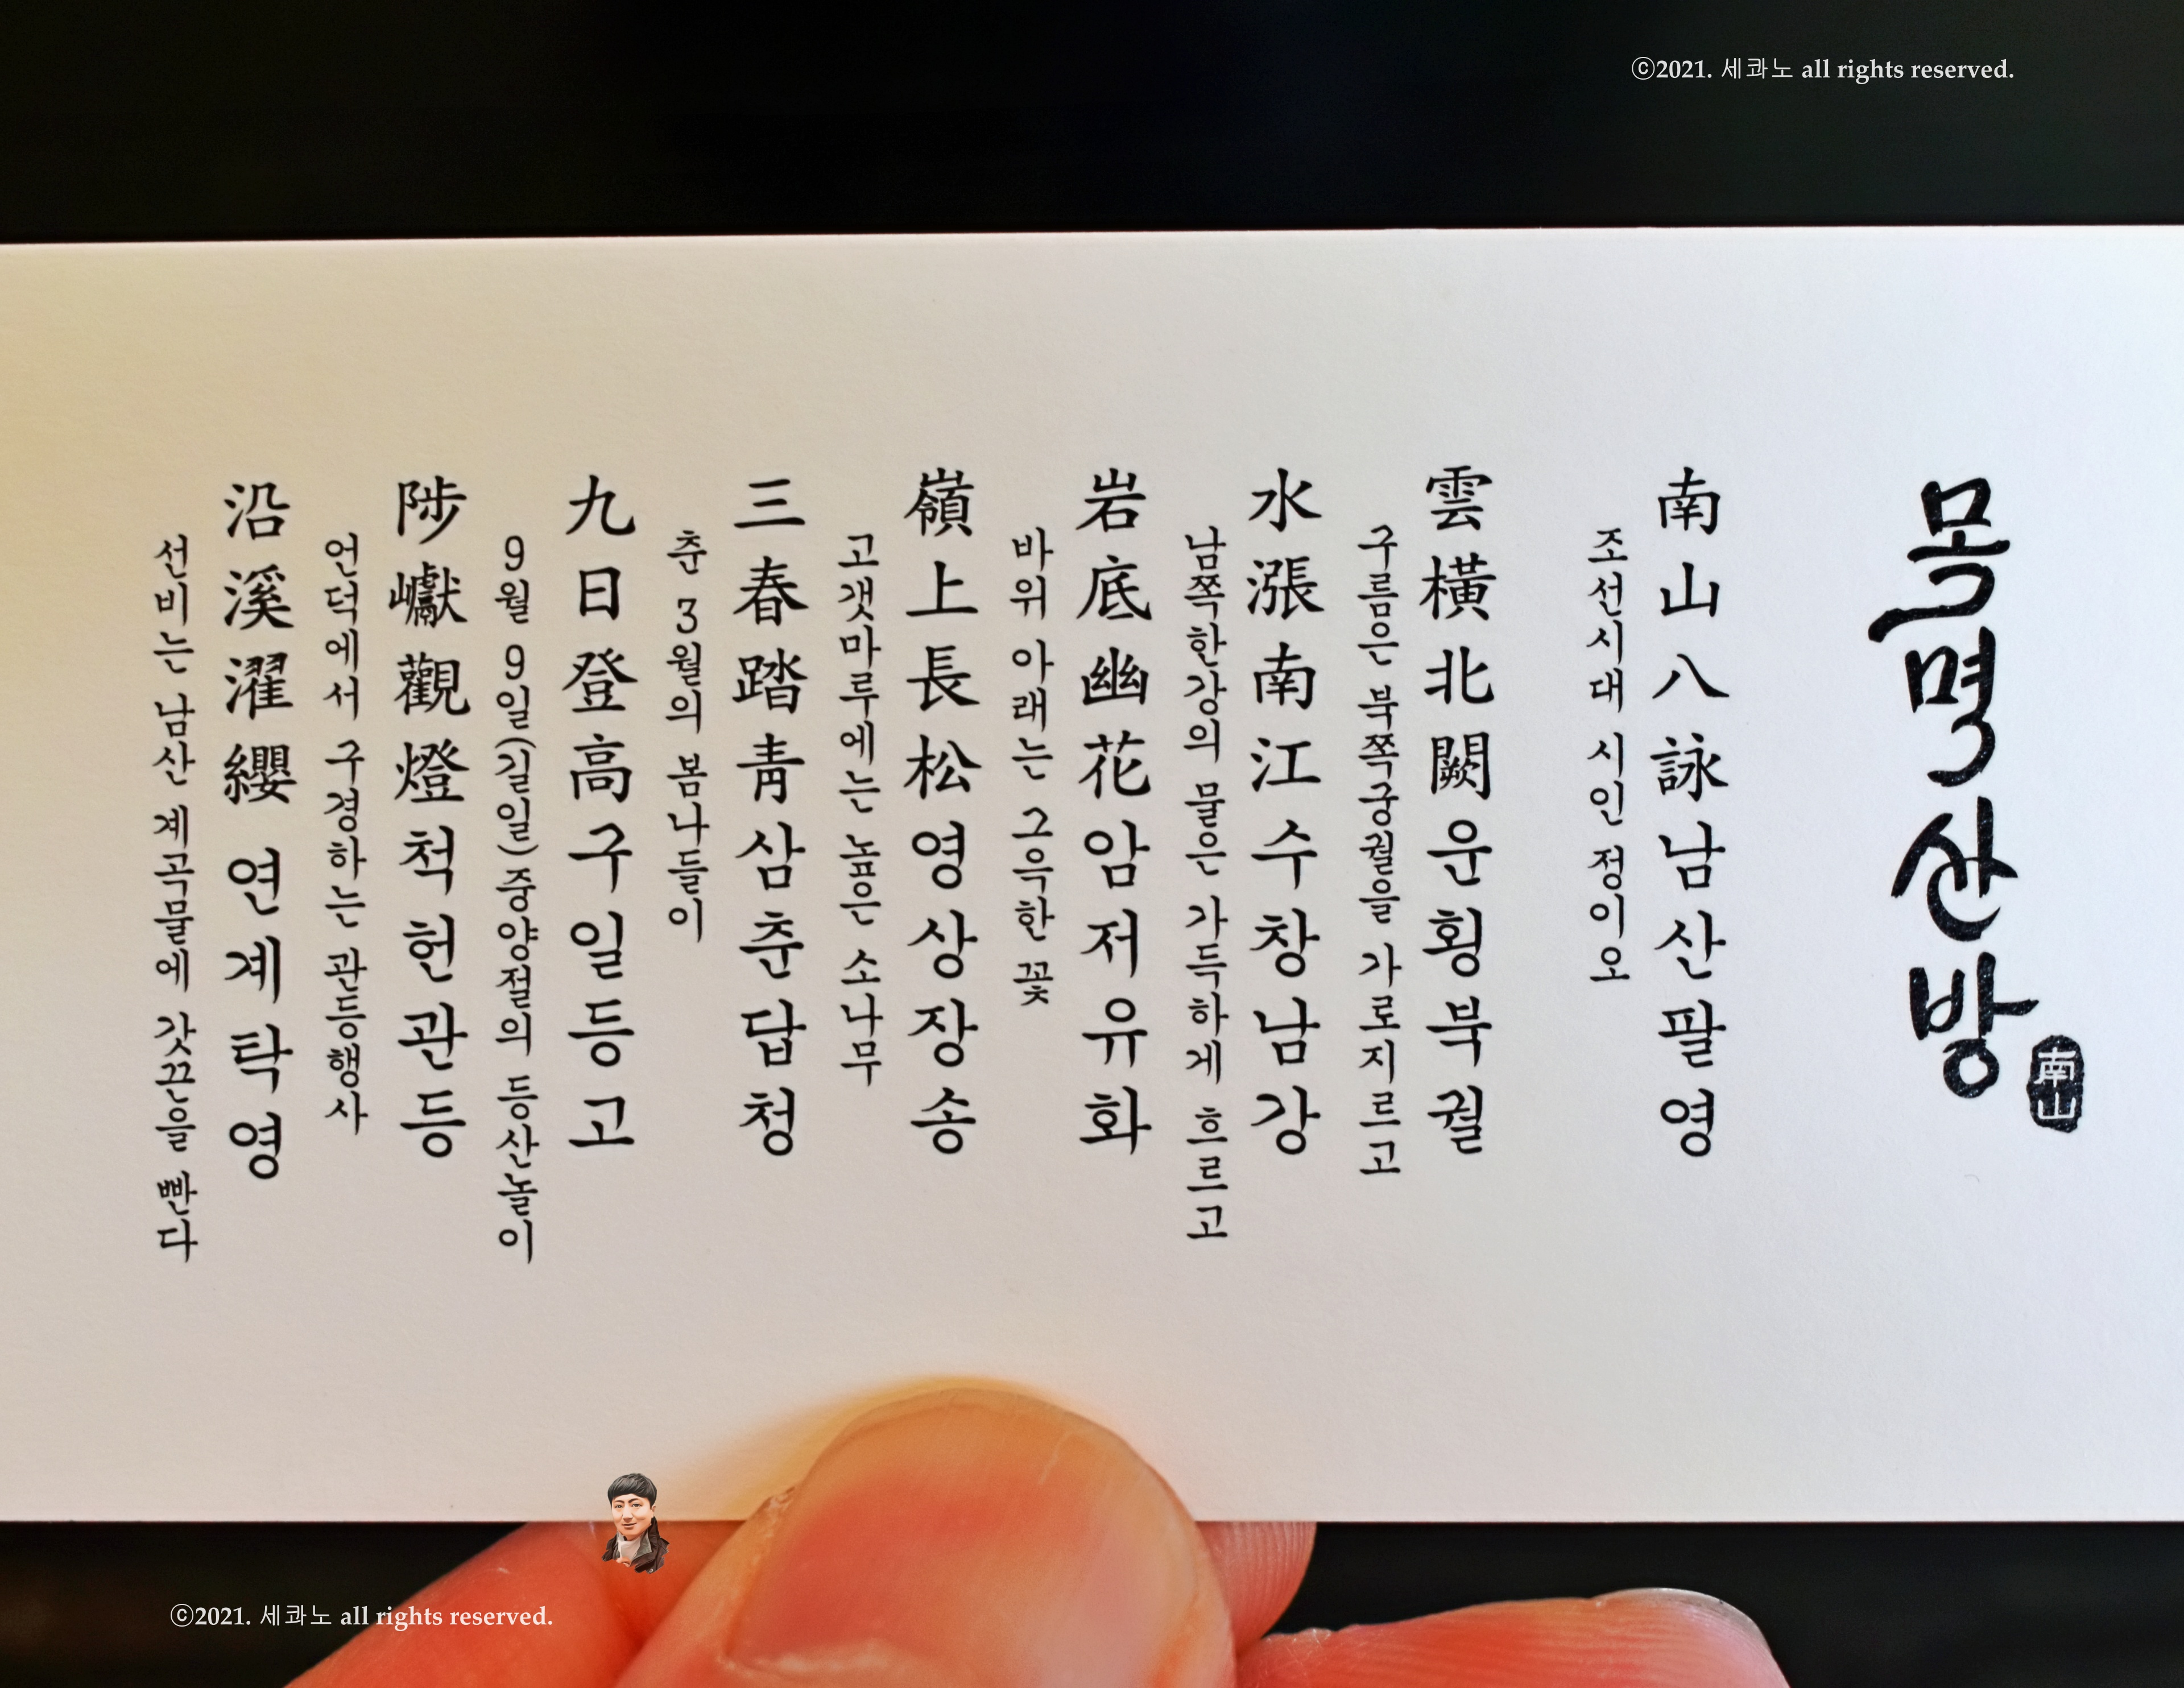 ⓒ2021. 세콰노 all rights reserved.
목멱산방
南山
南山八詠남산팔영
조선시대 시인 정이오
雲橫北闕운횡북궐
구름은 북쪽궁궐을 가로지르고
水漲南江수창남강
남쪽한강의 물은 가득하게 흐르고
岩底幽花암저유화
바위 아래는 그윽한 꽃
嶺上長松영상장송
고갯마루에는 높은 소나무
三春踏靑삼춘답청
춘 3월의 봄나들이
九日登高구일등고
9월 9일(길일)중양절의 등산놀이
陟巘觀燈척헌관등
언덕에서 구경하는 관등행사
沿溪濯纓 연계탁영
선비는 남산 계곡물에 갓끈을 빤다
ⓒ2021. 세콰노 all rights reserved.